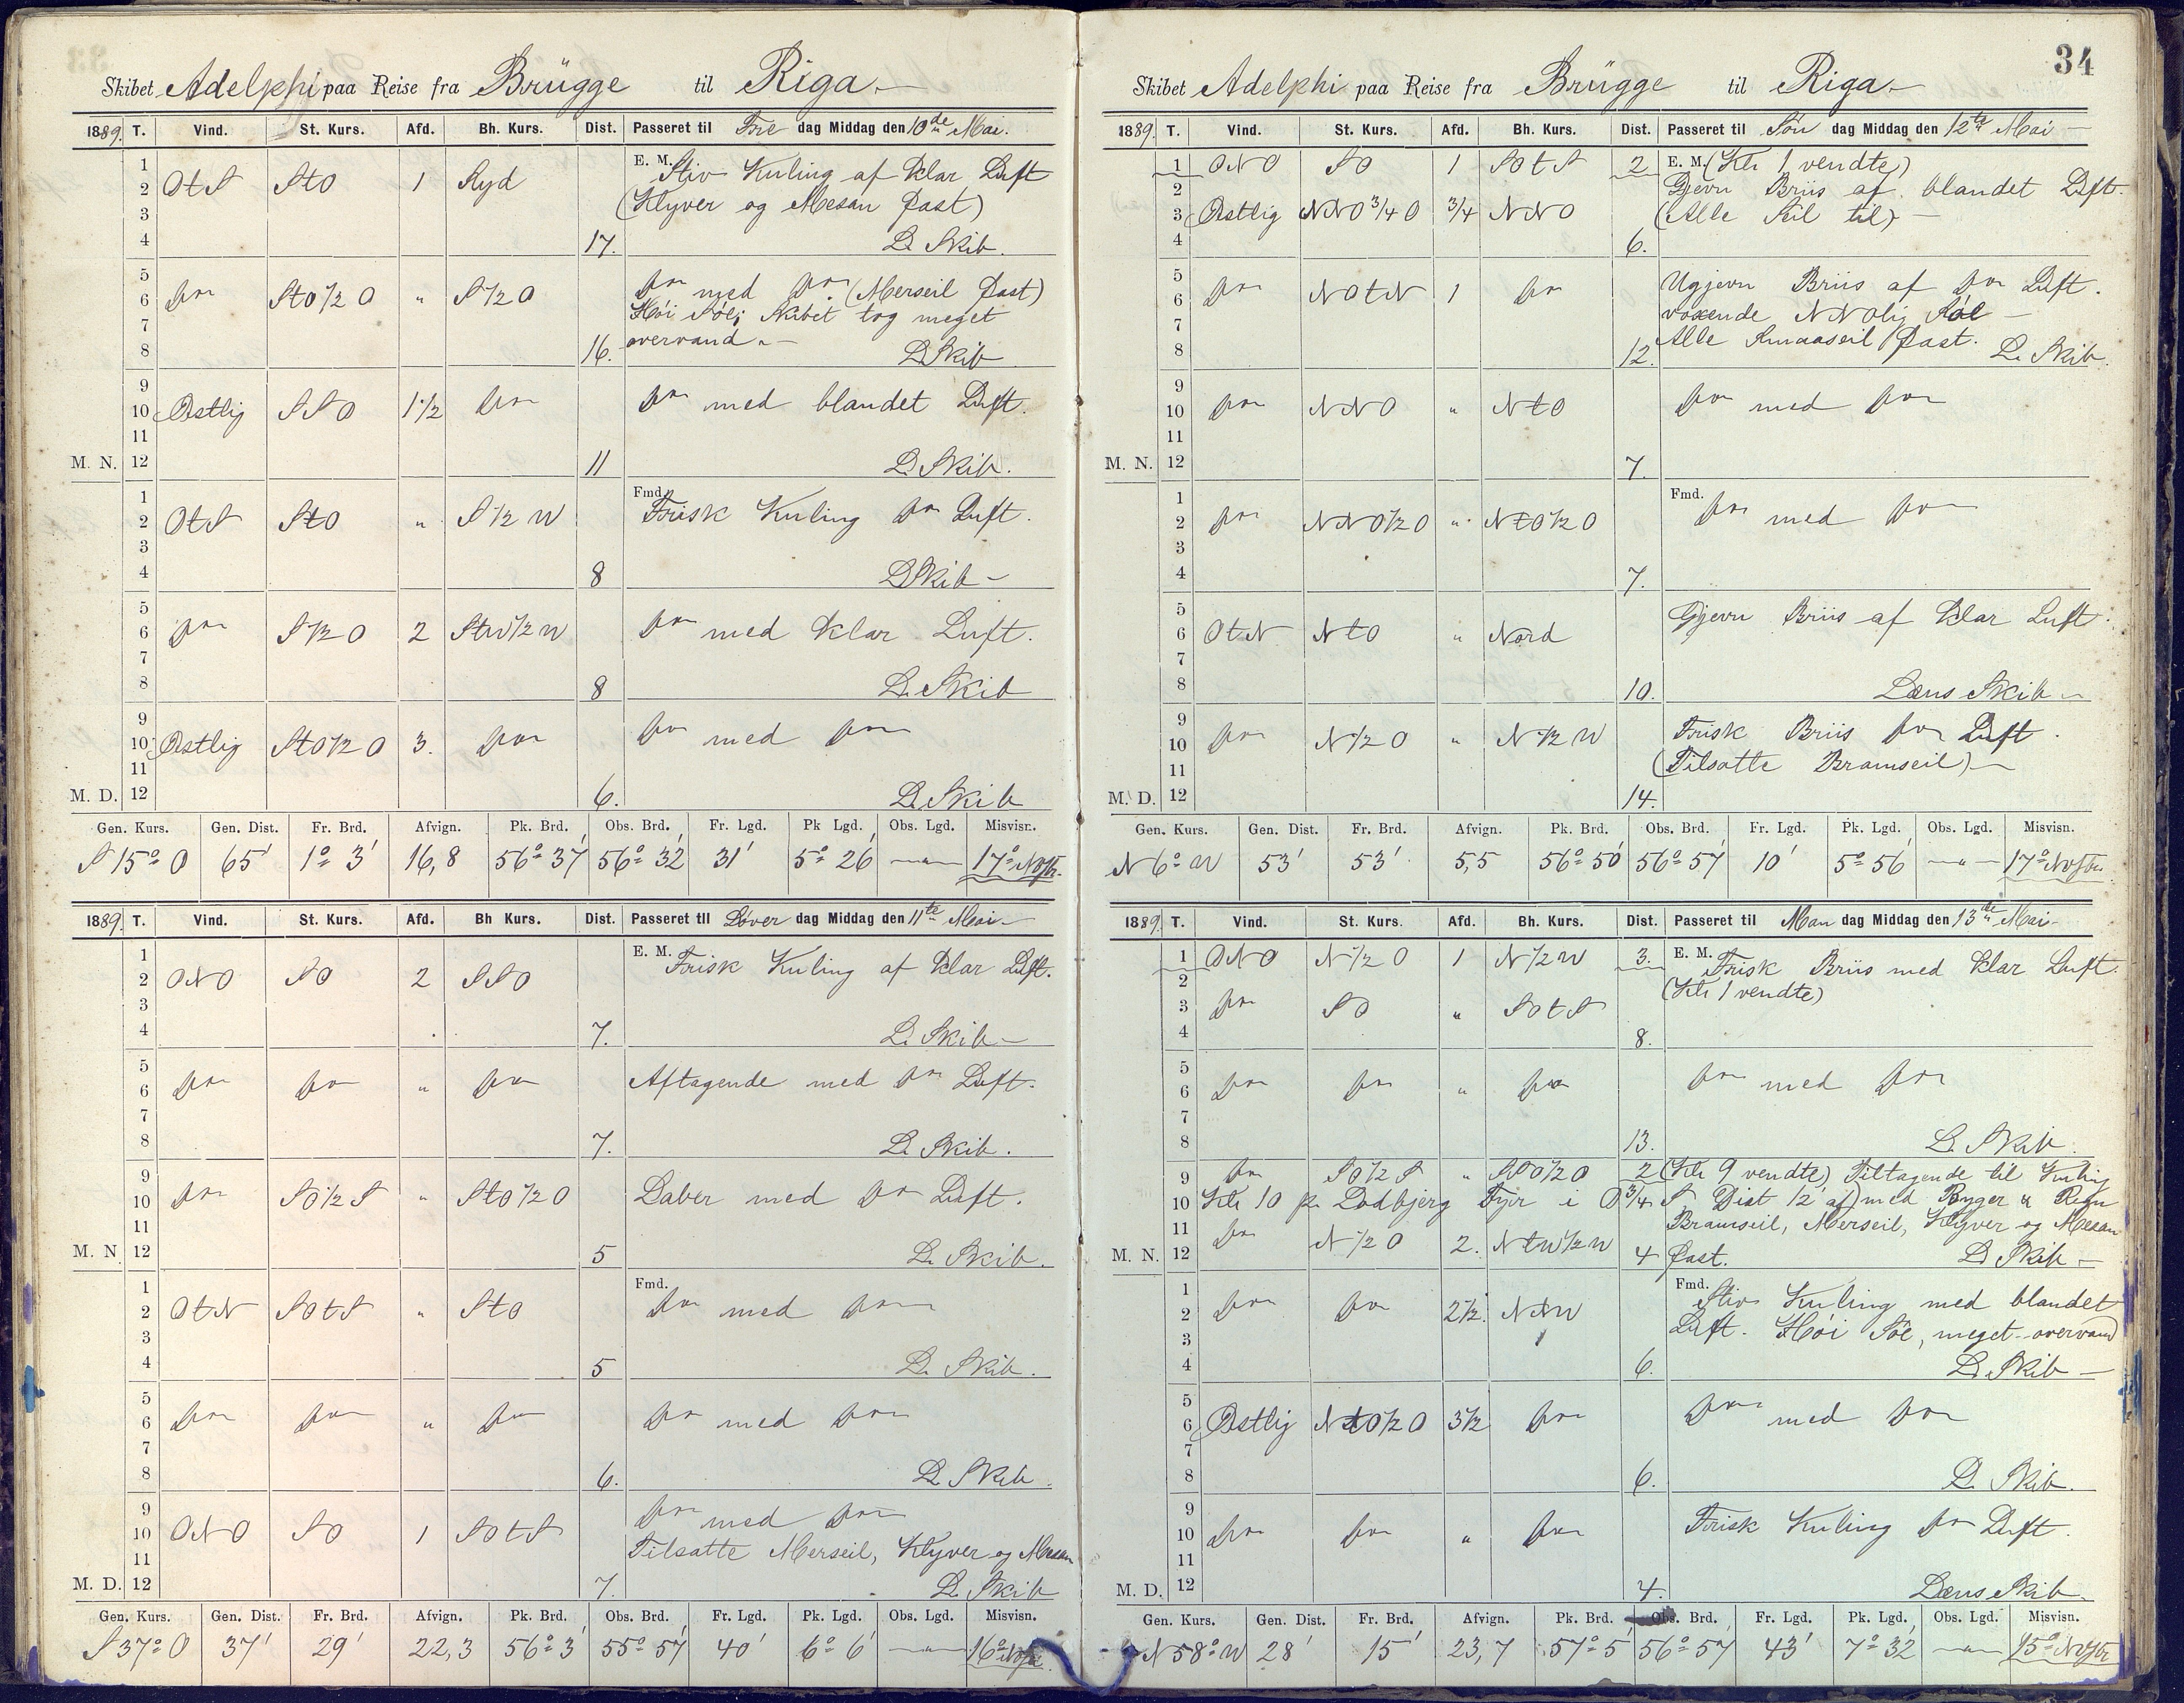 Skibet Adelphi paa Reise fra Brügge til Riga.
1889. T. Vind. St. Kurs. Afd. Bh. Kurs. Dist. Passeret til Fre dag Middag den 10de Mai.
1 E. M. Stiv Kuling af klar Luft
2 OtS StO 1 Syd (Klyver og Mesan fast)
3
4 17. L. Skib.
5
6 do StO 1/2 O " S 1/2 O do med do (Merseil fast)
7 Høi Søe; Skibet tog meget
8 16. overvand. L Skib
9
10 Østlig SSO 1 1/2 do do med blandet Luft.
11
M. N. 12 11 L. Skib.
1 Fmd.
2 OtS StO " S 1/2 W Frisk Kuling do Luft.
3
4 8 L Skib
5
6 do S 1/2 O 2 StW 1/2 W do med klar Luft.
7
8 8 L. Skib
9
10 Østlig StO 1/2 O 3. do do med do
11
M. D. 12 6. L. Skib
Gen. Kurs. Gen. Dist. Fr. Brd. Afvign. Pk. Brd. Obs. Brd. Fr. Lgd. Pk Lgd. Obs. Lgd. Misvisn.
S 15° O 65' 1° 3' 16,8 56° 37' 56° 32' 31' 5° 26' — " — 17° NVstr.
1889. T. Vind. St. Kurs. Afd. Bh Kurs. Dist. Passeret til Løver dag Middag den 11te Mai
1 E. M. Frisk Kuling af klar Luft.
2 ONO SO 2 SSO
3
4 7. L. Skib
5
6 do do " do Aftagende med do Luft.
7
8 7. L. Skib.
9
10 do SO 1/2 S " StO 1/2 O Laber med do Luft.
11
M. N 12 5 L. Skib.
1 Fmd.
2 OtN SOtS " StO do med do
3
4 5 L. Skib.
5
6 do do " do do med do
7
8 6. L. Skib.
9 do med do
10 ONO SO 1 SOtS
11 Tilsatte Merseil, Klyver og Mesan
M. D. 12 7. L. Skib
Gen. Kurs. Gen. Dist. Fr. Brd. Afvign. Pk. Brd. Obs. Brd. Fr. Lgd. Pk. Lgd. Obs. Lgd. Misvisn.
S 37° O 37' 29' 22,3 56° 3' 55° 57' 40' 6° 6' — " — 16° NVstr.
34
Skibet Adelphi paa Reise fra Brügge til Riga
1889. T. Vind. St. Kurs. Afd. Bh. Kurs. Dist. Passeret til Søn dag Middag den 12te Mai
1 ONO SO 1 SOtS 2 E. M. (Kl. 1 vendte)
2 Gjevn Briis af blandet Luft.
3 Østlig NNO 3/4 O 3/4 NNO (Alle Seil til)
4 6.
5 Ugjevn Briis af do Luft.
6 do NOtN 1 do
7 voxende NNOlig Søe
8 12. Alle Smaaseil fast. L. Skib.
9
10 do NNO " NtO do med do
11
M. N. 12 7.
1 Fmd.
2 do NNO 1/2 O " NtO 1/2 O do med do
3
4 7.
5
6 OtN NtO " Nord Gjevn Briis af klar Luft.
7
8 10. Læns Skib
9 Frisk Briis do Luft.
10 do N 1/2 O " N 1/2 W
11 (Tilsatte Bramseil)
M. D. 12 14.
Gen. Kurs. Gen. Dist. Fr. Brd. Afvign. Pk. Brd. Obs. Brd. Fr. Lgd. Pk. Lgd. Obs. Lgd. Misvisn.
N 6° W 53' 53' 5,5 56° 50' 56° 57' 10' 5° 56' — " — 17° NVstr.
1889. T. Vind. St. Kurs. Afd. Bh. Kurs. Dist. Passeret til Man dag Middag den 13de Mai
1 ONO N 1/2 O 1 N 1/2 W 3. E. M. Frisk Briis med klar Luft.
2 (Kl. 1 vendte)
3 do SO " SOtS
4 8.
5
6 do do " do do med do
7
8 13. L. Skib
9 do SO 1/2 S " SSO 1/2 O 2 (Kl. 9 vendte) Tiltagende til Kuling
10 Kl. 10 p. Lodbjerg Fyr i O 3/4 S Dist 12' af) med Byger u Regn
11 do N 1/2 O 2. NtW 1/2 W Bramseil, Merseil, Klyver og Mesan
M. N. 12 4 fast. L. Skib
1 Fmd. Stiv Kuling med blandet
2 do do 2 1/2. NtW
3 Luft. Høi Søe, meget overvand
4 6. L. Skib
5
6 Østlig NtO 1/2 O 3 1/2 do do med do
7
8 6. L. Skib.
9
10 do do " do Frisk Kuling do Luft.
11
M. D. 12 4. Læns Skib.
Gen. Kurs. Gen. Dist. Fr. Brd. Afvign. Pk. Brd. Obs. Brd. Fr. Lgd. Pk. Lgd. Obs. Lgd. Misvisn.
N 58° W 28' 15' 23,7 57° 5' 56° 57' 43' 7° 32' — " — 15° NVstr